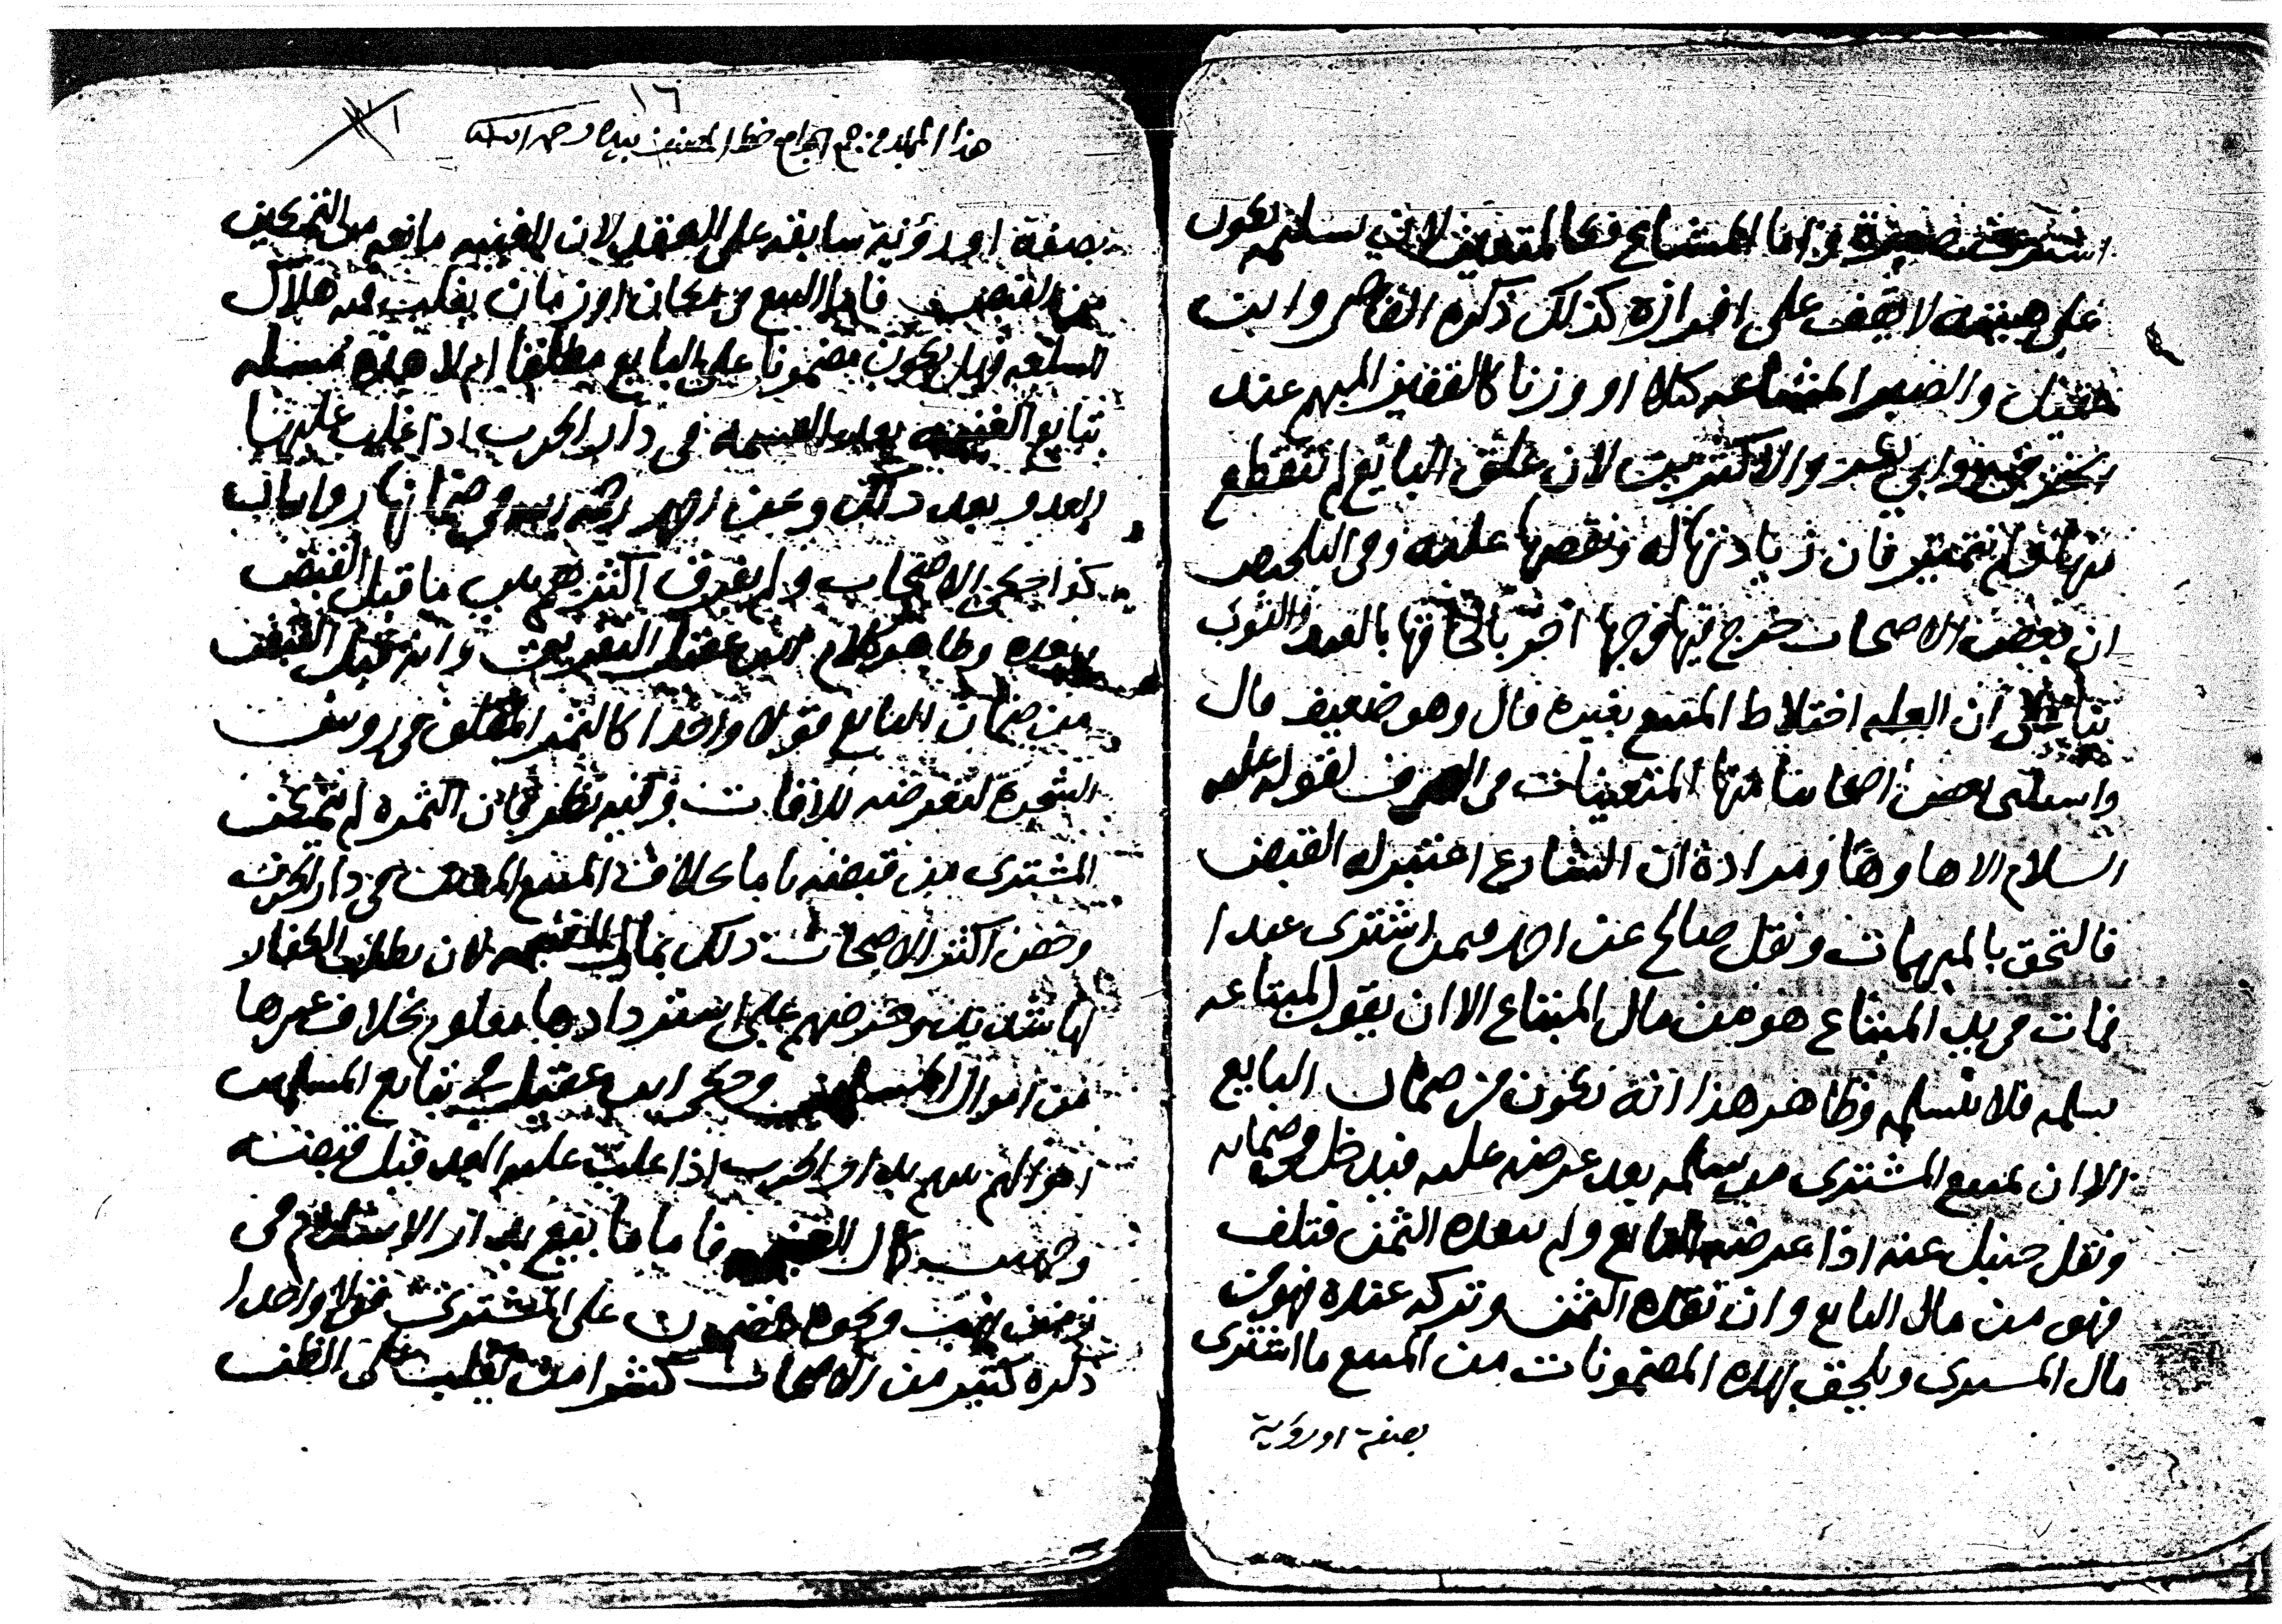 اشتري صبرة واما المشاع فكالمتعين لان تسليمه يكون
على هيئته لا يقف على افرازه كذلك ذكره القاضي وابن
عقيل والصبر المشاعه كيلا او وزنا كالقفيز المبهم عند
الخرقي وابي بكر والاكثرين لان علق البايع لم تنقطع
منها ولم تتميز فان زيادتها له ونقصها عليه وفي التلخيص
ان بعض الاصحاب خرج فيها وجها اخر بالحاقها بالعبد والثوب
بناء على ان العله اختلاط المبيع بغيره قال وهو ضعيف قال
واستثنى بعض اصحابنا منها المتعينات في الصرف لقوله عليه
السلام الا ها وها ومراده ان الشارع اعتبر له القبض
فالتحق بالمبهمات ونقل صالح عن احمد فيمن اشترى عبدا
فمات في يد المبتاع هو من مال المبتاع الا ان يقول المبتاعه
سلمه فلا يسلمه وظاهر هذا انه يكون من ضمان البايع
الا ان يمتنع المشتري من تسلمه بعد عرضه عليه فيدخل في ضمانه
ونقل حنبل عنه اذا عرضه البايع ولم ينقده الثمن فتلف
فهو من مال البايع وان نقده الثمن وتركه عنده فهو من
مال المشتري ويلحق بهذه المضمونات من المبيع ما اشترى
بصفة او روية
١٦
هذا المجلد من جمع الجوامع خط المصنف بيده رحمه الله
بصفة او رؤية سابقه على العقد لان الغيبه مانعه من التمكين
من القبض فاما البيع في مكان او زمان يغلب فيه هلاك
السلعه فهل يكون مضمونا على البايع مطلقا ام لا هذه مسئله
تبايع الغنيمه بعد القسمه في دار الحرب اذا غلب عليها
العدو بعد ذلك وعن احمد رحمه الله في ضمانها روايتان
كذا حكى الاصحاب ولم يفرق اكثرهم بين ما قبل القبض
وبعده وظاهر كلام ابن عقيل التفريق وانه قبل القبض
من ضمان البايع قولا واحدا كالثمر المعلق في روس
الشجره لتعرضه للافات وفيه نظر فان الثمره لم يتمكن
المشتري من قبضها تاما بخلاف المبيع المعين في دار الحرب
وخص اكثر الاصحاب ذلك بمال الغنيمه لان تطلب الكفار
لها شديد وحرصهم على استردادها معلوم بخلاف غيرها
من اموال المسلمين وحكى ابن عقيل في تبايع المسلمين
اموالهم بينهم بدار الحرب اذا غلب عليها العدو قبل قبضه
وجهين كمال الغنيمه فاما ما بيع بدار الاسلام في
زمن نهب ونحوه فمضمون على المشتري قولا واحدا
ذكره كثير من الاصحاب كشرا من يغلب على الظن